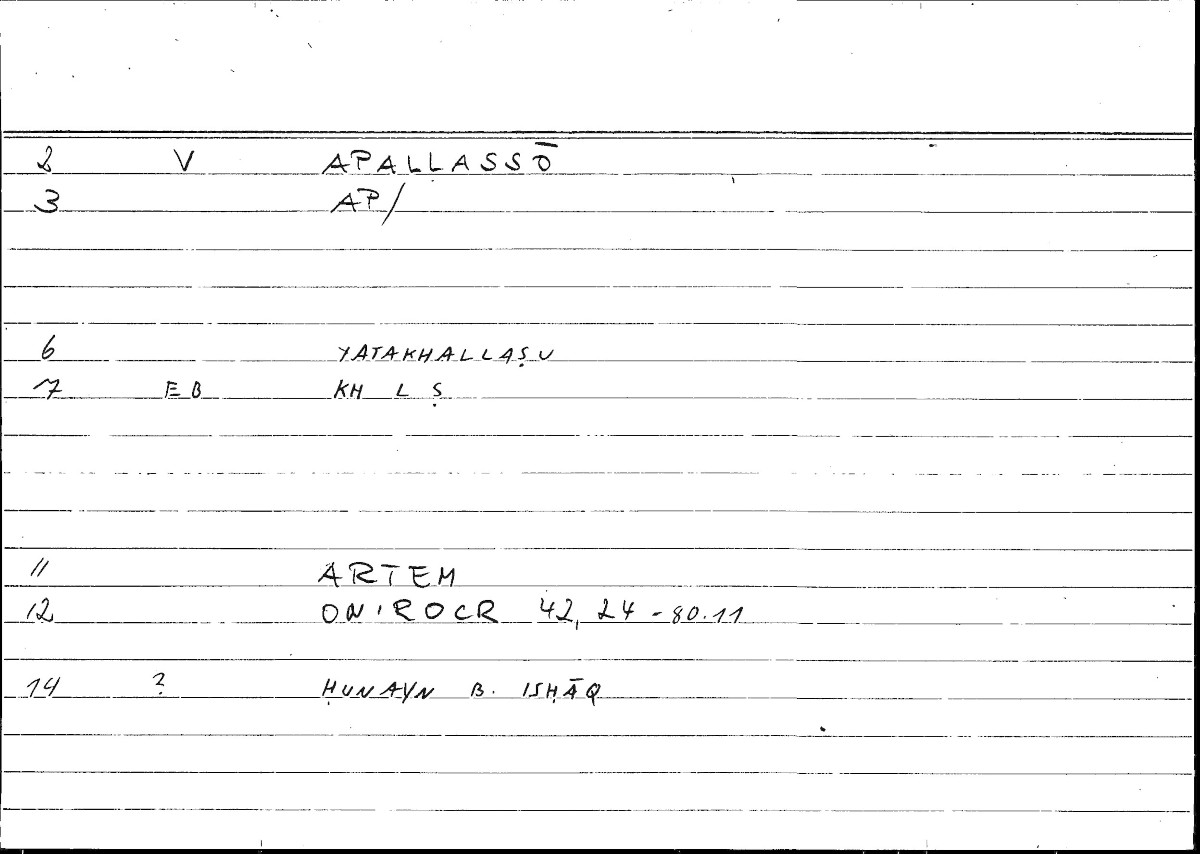 2 V APALLASSŌ
3 AP/
6 YATAKHALLAṢU
7 EB KH L Ṣ
11 ARTEM
12 ONIROCR 42, 24 - 80.11
14 ? ḤUNAYN B. ISḤĀQ